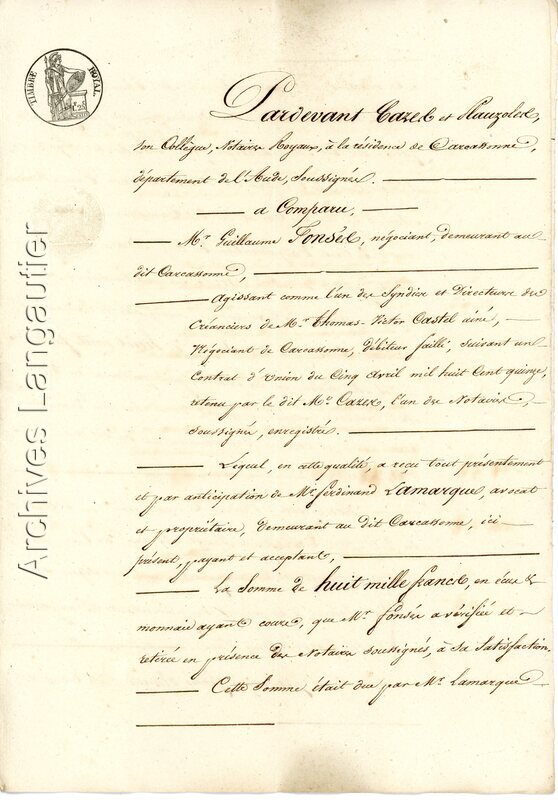 TIMBRE ROYAL
Pardevant Cazes et Nauzoles,
son Collègue, Notaires Royaux, à la résidence de Carcassonne,
département de l'Aude, Soussignés.
a Comparu,
Mr. Guillaume Fonsès, négociant, demeurant au
dit Carcassonne,
Agissant comme l'un des Syndics et Directeurs des
Créanciers de Mr. Thomas-Victor Castel ainé,
Négociant de Carcassonne, débiteur failli, suivant un
Contrat d'Union du Cinq Avril mil huit Cent quinze,
retenu par le dit Me. Cazes, l'un des Notaires,
soussignés, enregistré.
Lequel, en cette qualité, a reçu tout présentement
et par anticipation de Mr. ferdinand Lamarque, avocat
et propriétaire, demeurant au dit Carcassonne, ici
présent, payant et acceptant,
La Somme de huit mille francs, en écus &
monnaie ayant cours, que Mr. fonsès a vérifiée et
retirée en présence des Notaires soussignés, à sa Satisfaction.
Cette Somme était due par Mr. Lamarque
Archives Langautier